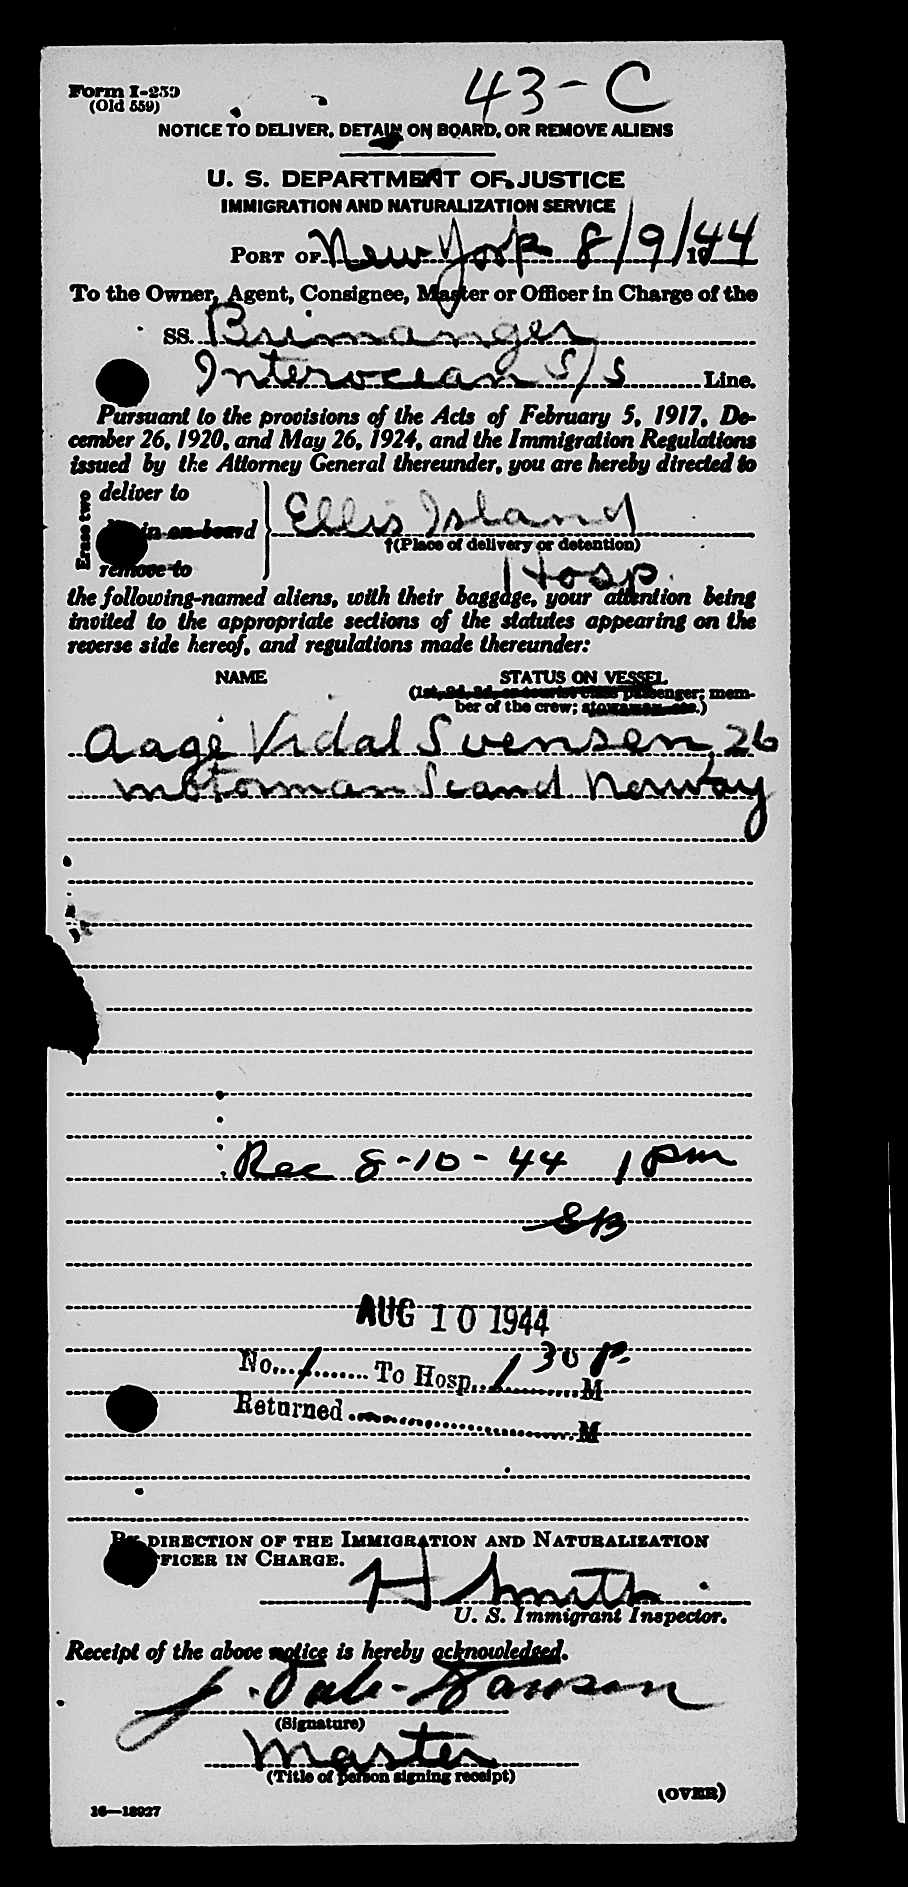 Form I-259
(Old 559)
43-C
NOTICE TO DELIVER, DETAIN ON BOARD, OR REMOVE ALIENS
U. S. DEPARTMENT OF JUSTICE
IMMIGRATION AND NATURALIZATION SERVICE
PORT OF New York 8/9/1944
To the Owner, Agent, Consignee, Master or Officer in Charge of the
SS. Brimanger
Interocean S/S Line.
Pursuant to the provisions of the Acts of February 5, 1917, De-
cember 26, 1920, and May 26, 1924, and the Immigration Regulations
issued by the Attorney General thereunder, you are hereby directed to
Erase two
deliver to
detain on board
remove to
Ellis Island
†(Place of delivery or detention)
Hosp.
the following-named aliens, with their baggage, your attention being
invited to the appropriate sections of the statutes appearing on the
reverse side hereof, and regulations made thereunder:
NAME STATUS ON VESSEL
(1st, 2d, 3d, or tourist class passenger; mem-
ber of the crew; stowaway, etc.)
Aage Vidal Svensen, 26
motorman Scand Norway
Rec 8-10-44 1 pm
SB
AUG 10 1944
No. 1 To Hosp. 1 30 P. M
Returned M
BY DIRECTION OF THE IMMIGRATION AND NATURALIZATION
OFFICER IN CHARGE.
H Smith
U. S. Immigrant Inspector.
Receipt of the above notice is hereby acknowledged.
J.
(Signature)
Master
(Title of person signing receipt)
(OVER)
16—18927